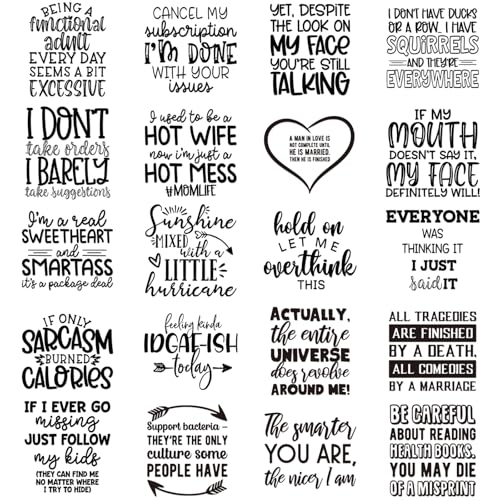 BEING A
functional
adult
EVERY DAY
SEEMS A BIT
EXCESSIVE
CANCEL MY
subscription
I'M DONE
WITH YOUR
issues
YET, DESPITE
THE LOOK ON
MY FACE
YOU'RE STILL
TALKING
I DON'T HAVE DUCKS
OR A ROW. I HAVE
SQUIRRELS
AND THEY'RE
EVERYWHERE
I DON'T
take orders
I BARELY
take suggestions
I used to be a
HOT WIFE
now i'm just a
HOT MESS
#MOMLIFE
A MAN IN LOVE IS
NOT COMPLETE UNTIL
HE IS MARRIED.
THEN HE IS FINISHED
IF MY
MOUTH
DOESN'T SAY IT,
MY FACE
DEFINITELY WILL!
I'm a real
SWEETHEART
and
SMARTASS
it's a package deal
Sunshine
MIXED
with a
LITTLE
hurricane
hold on
LET ME
overthink
THIS
EVERYONE
WAS
THINKING IT
I JUST
Said IT
IF ONLY
SARCASM
BURNED
CALORIES
feeling kinda
IDGAF-ISH
today
ACTUALLY,
the entire
UNIVERSE
does revolve
AROUND ME!
ALL TRAGEDIES
ARE FINISHED
BY A DEATH,
ALL COMEDIES
BY A MARRIAGE
IF I EVER GO
missing
JUST FOLLOW
my kids
(THEY CAN FIND ME
NO MATTER WHERE
I TRY TO HIDE)
Support bacteria –
THEY'RE THE ONLY
culture some
PEOPLE HAVE
The smarter
YOU ARE,
the nicer I am
BE CAREFUL
ABOUT READING
HEALTH BOOKS.
YOU MAY DIE
OF A MISPRINT